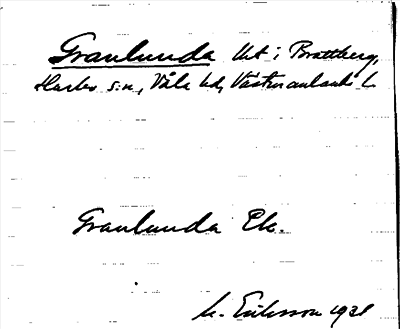 Granlunda Uet i Brattberg,
Harbo s:n, Våla hd, Västmanlands l.
Granlunda Ek.
M. Eriksson 1931